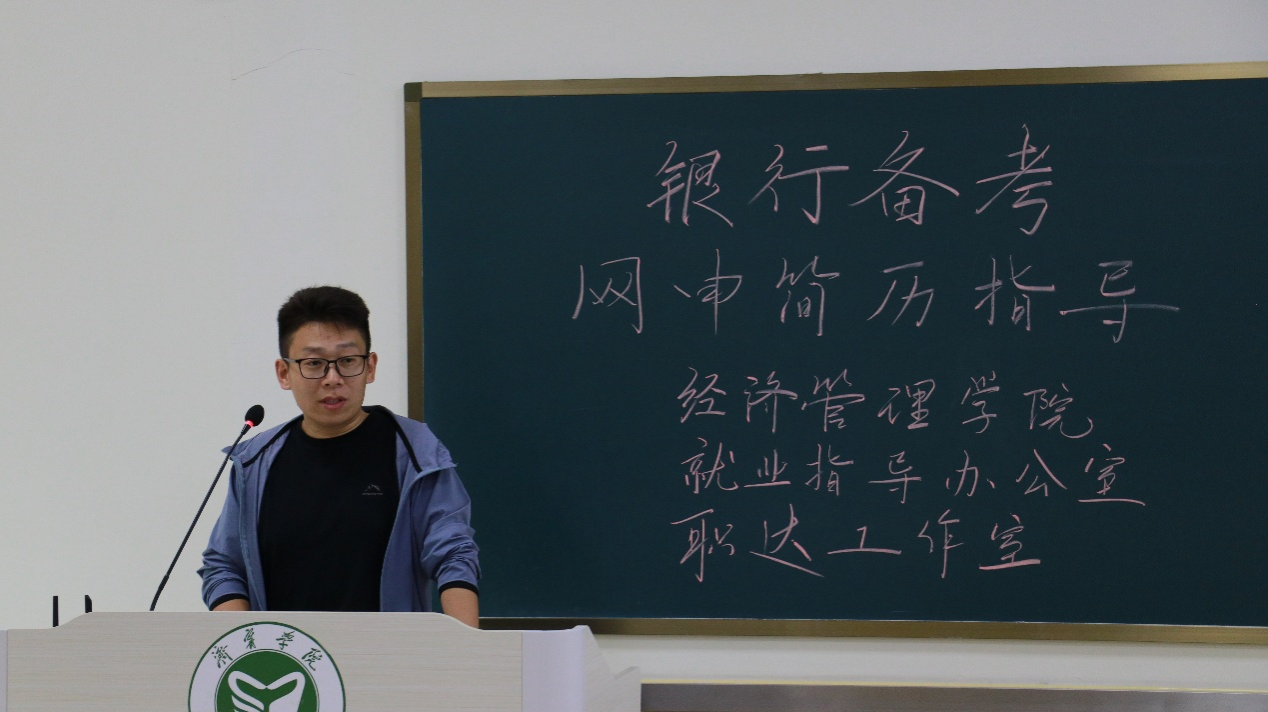 银行备考
网申简历指导
经济管理学院
就业指导办公室
职达工作室
学院